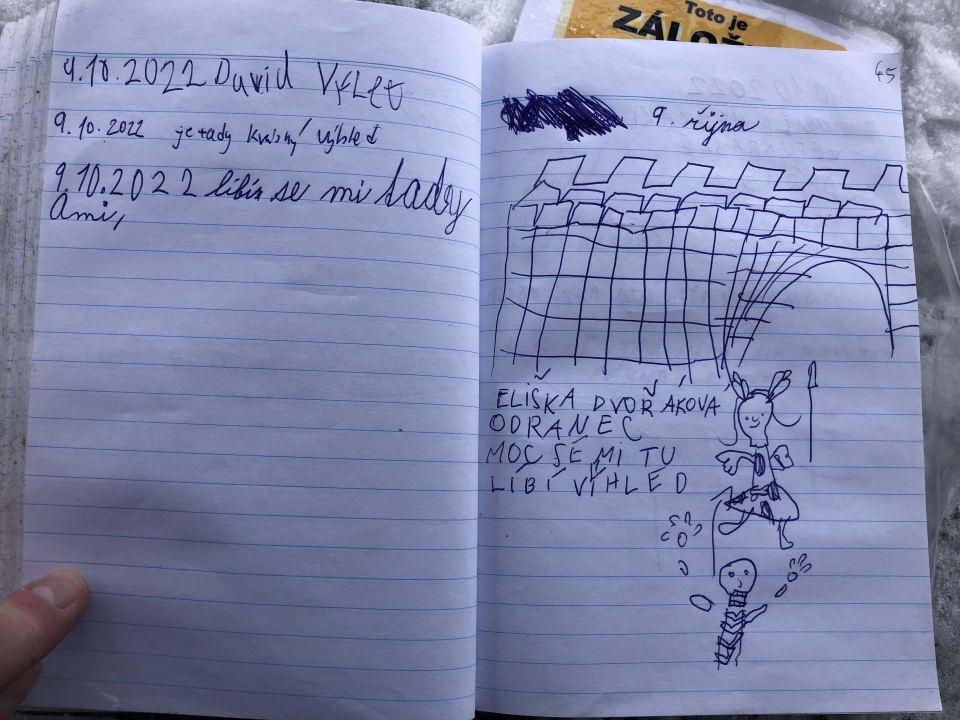 9.10.2022 David VýLet
9.10.2022 je tady krásný výhled
9.10.2022 líbín se mi tady
Ami,
Toto je
45
9. října
ELIŠKA DVOŘÁKOVA
ODRANEC
MOC SE MI TU
LÍBÍ VÍHLED